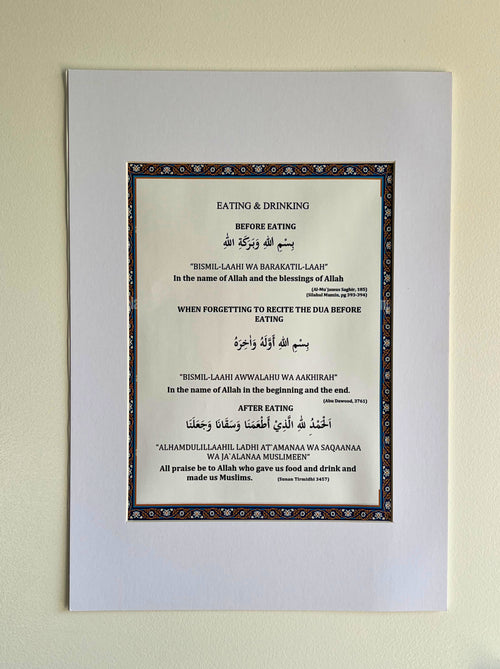 EATING & DRINKING
BEFORE EATING
بِسْمِ اللهِ وَبَرَكَةِ اللهِ
“BISMIL-LAAHI WA BARAKATIL-LAAH”
In the name of Allah and the blessings of Allah
(Al-Mu`jamus Saghir, 185)
(Silahul Mumin, pg 393-394)
WHEN FORGETTING TO RECITE THE DUA BEFORE
EATING
بِسْمِ اللهِ أَوَّلَهُ وَاٰخِرَهُ
“BISMIL-LAAHI AWWALAHU WA AAKHIRAH”
In the name of Allah in the beginning and the end.
(Abu Dawood, 3761)
AFTER EATING
اَلْحَمْدُ لِلّٰهِ الَّذِيْ أَطْعَمَنَا وَسَقَانَا وَجَعَلَنَا
“ALHAMDULILLAAHIL LADHI AT`AMANAA WA SAQAANAA
WA JA`ALANAA MUSLIMEEN”
All praise be to Allah who gave us food and drink and
made us Muslims. (Sunan Tirmidhi 3457)